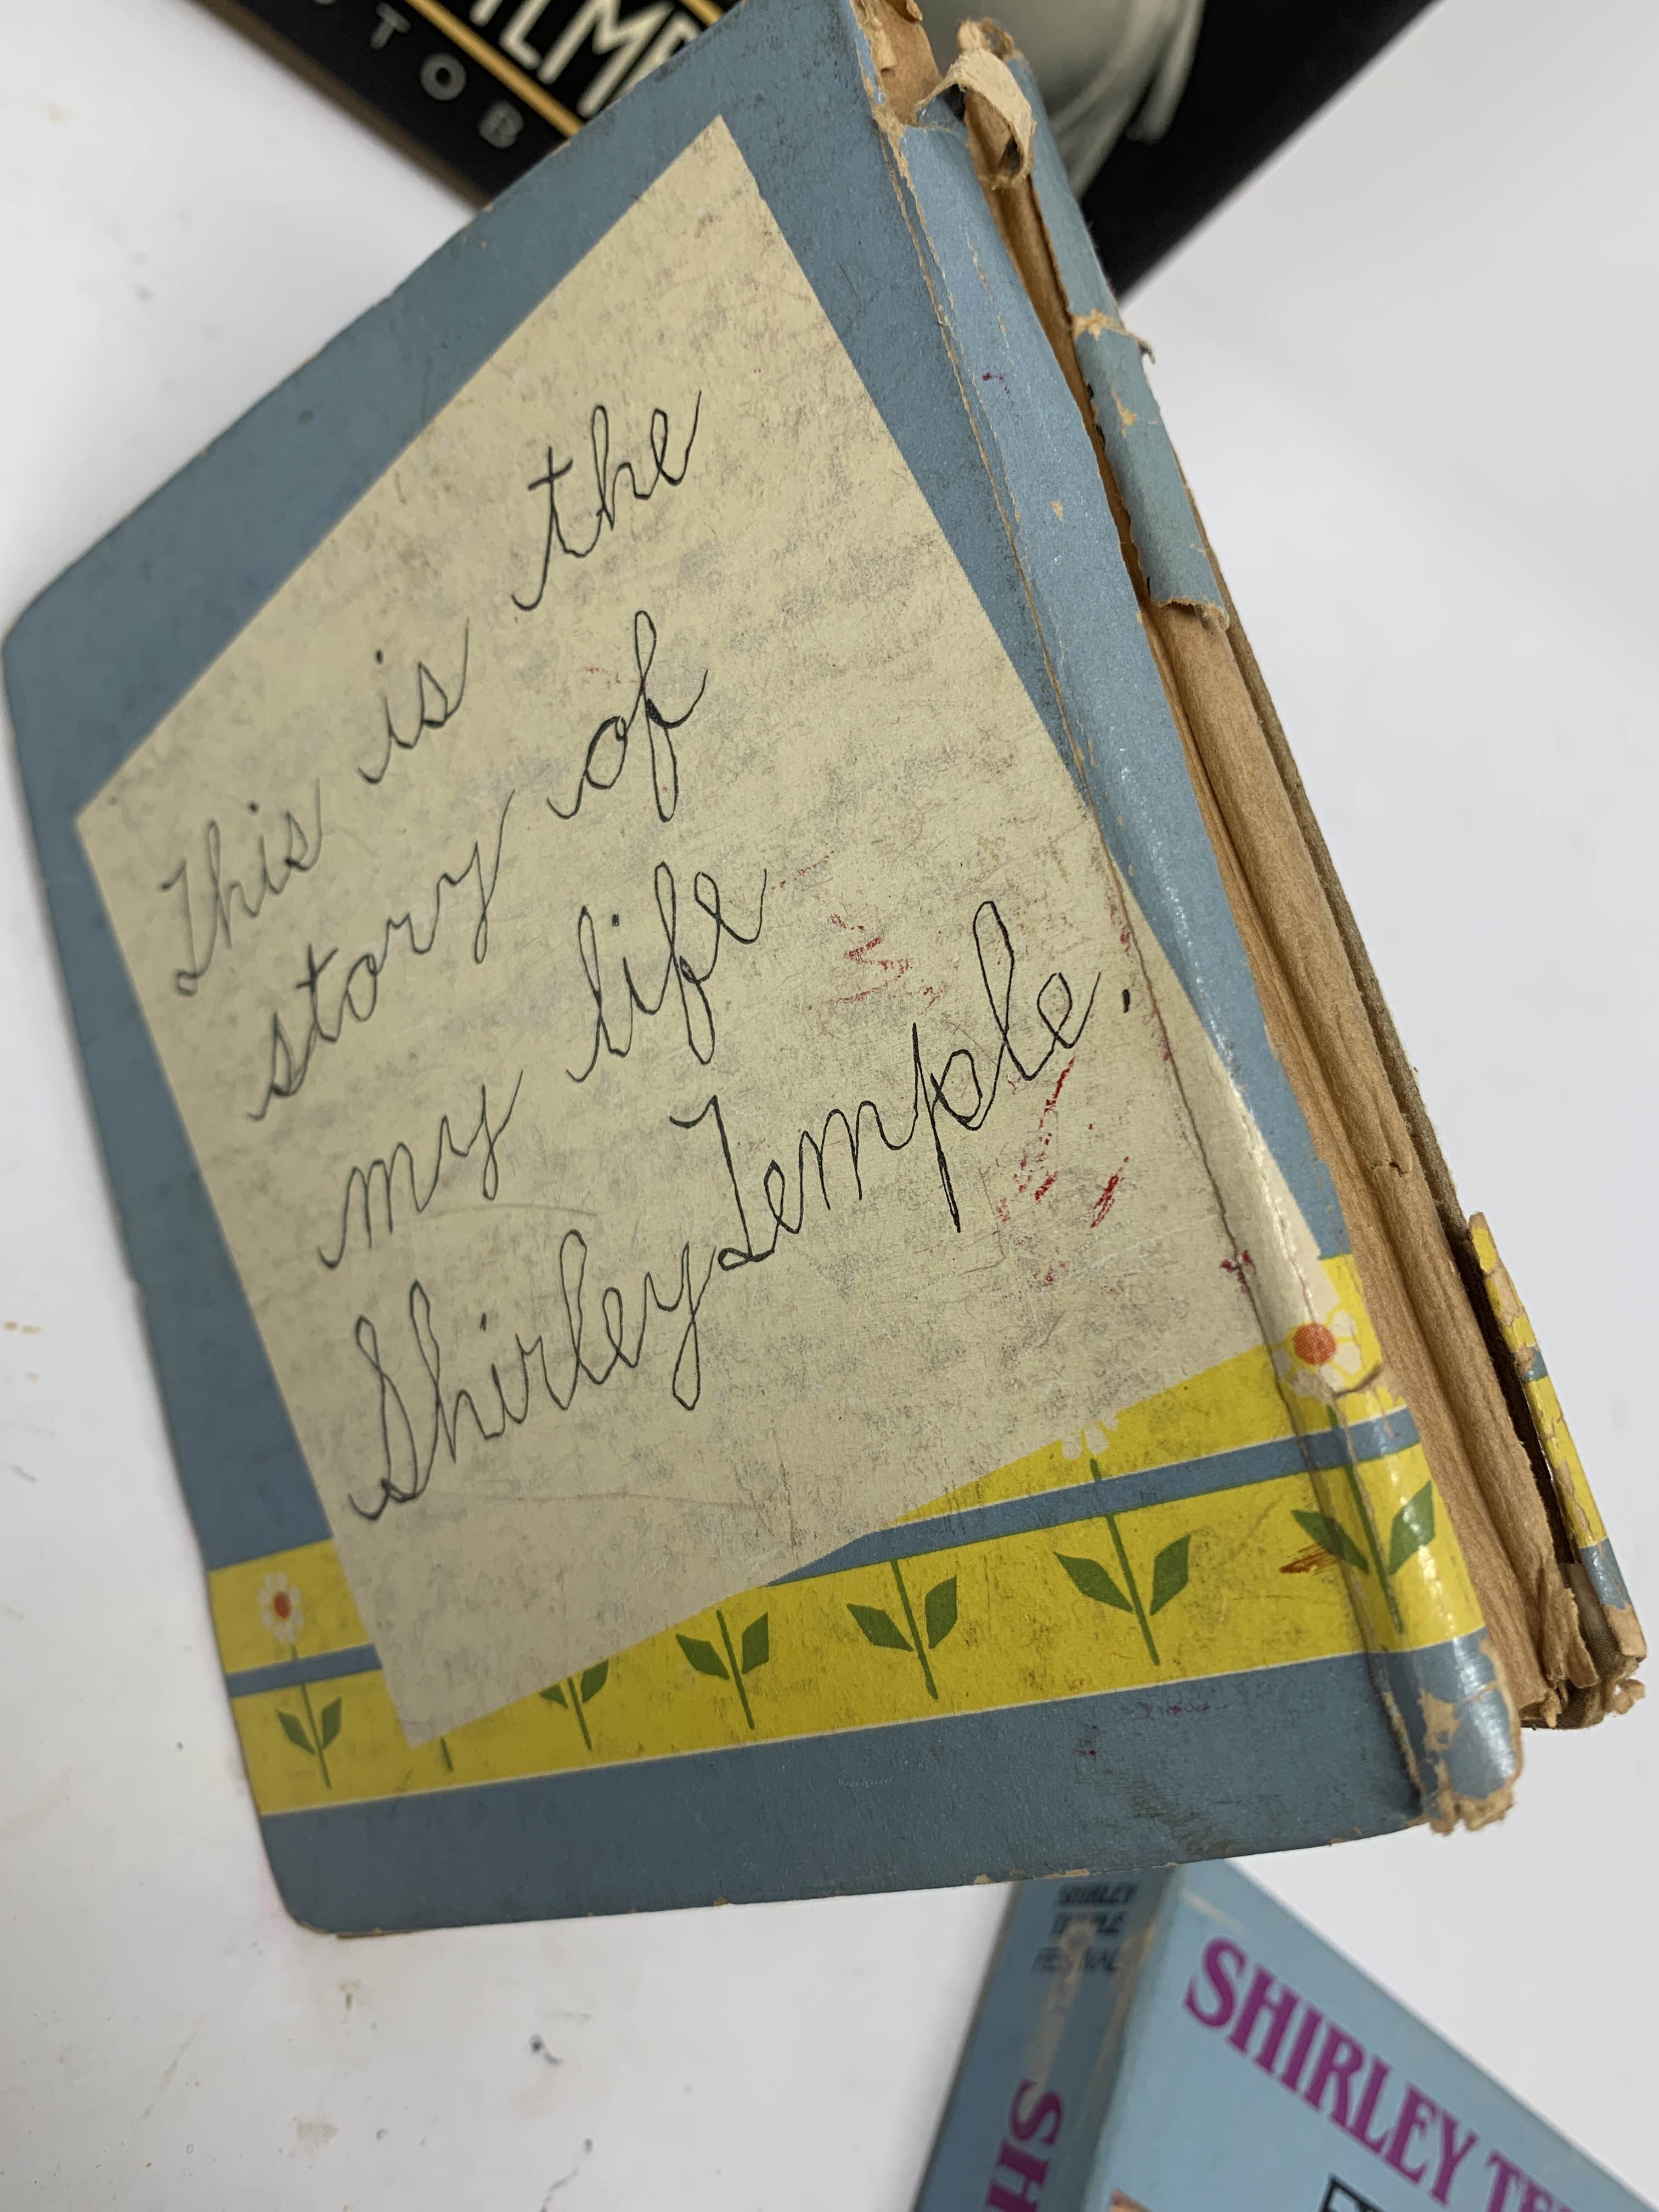 TOB
This is the
story of
my life
Shirley Temple.
SHIRLEY
TEMPLE
FESTIVAL
SH
SHIRLEY TE